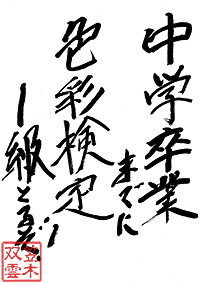 中学卒業
までに
色彩検定
1級とるぞ!
笠木
双雲